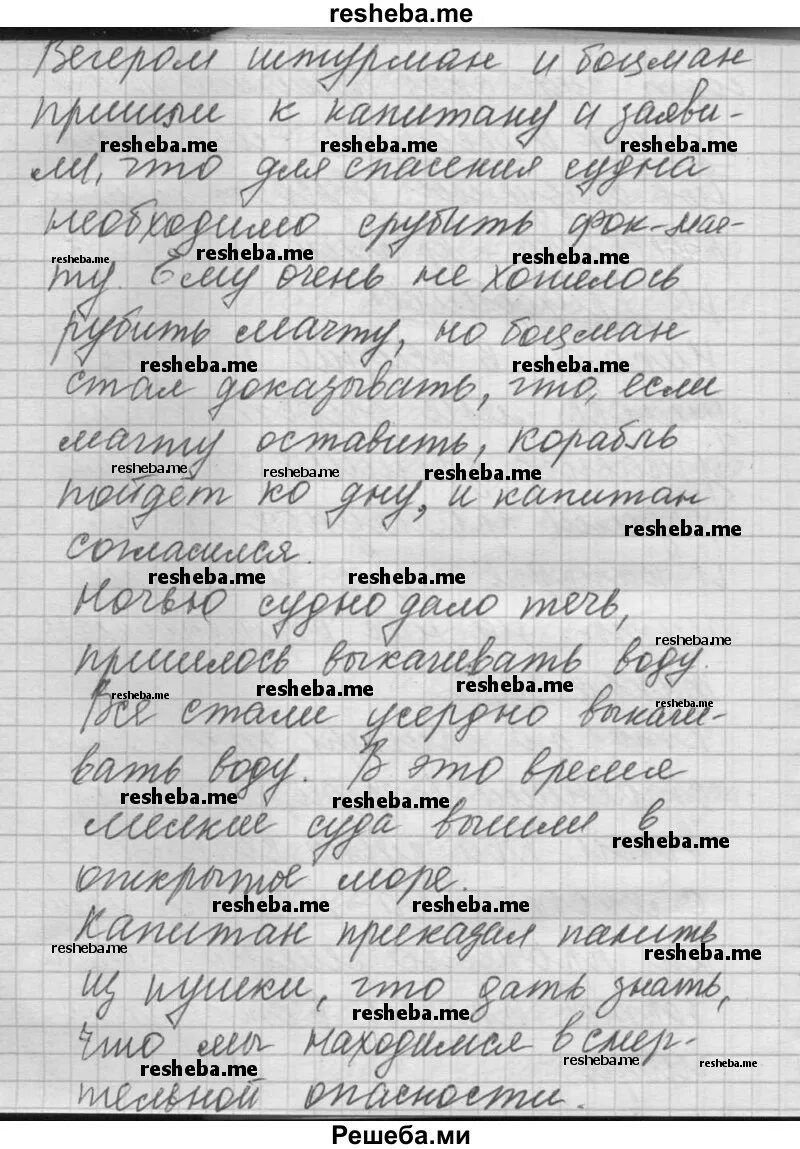 resheba.me
Вечером штурман и боцман
пришли к капитану и заяви-
resheba.me resheba.me resheba.me
ли, что для спасения судна
необходимо срубить фок-мач-
resheba.me resheba.me resheba.me
ту. Ему очень не хотелось
рубить мачту, но боцман
resheba.me resheba.me
стал доказывать, что, если
мачту оставить, корабль
resheba.me resheba.me resheba.me
пойдёт ко дну, и капитан
resheba.me
согласился.
resheba.me resheba.me
Ночью судно дало течь,
resheba.me
пришлось выкачивать воду.
resheba.me resheba.me resheba.me
Все стали усердно выкачи-
resheba.me
вать воду. В это время
resheba.me resheba.me
мелкие суда вышли в
resheba.me
открытое море.
resheba.me resheba.me
Капитан приказал палить
resheba.me resheba.me
из пушки, что дать знать,
resheba.me
что мы находимся в смер-
resheba.me resheba.me resheba.me
тельной опасности.
Решеба.ми